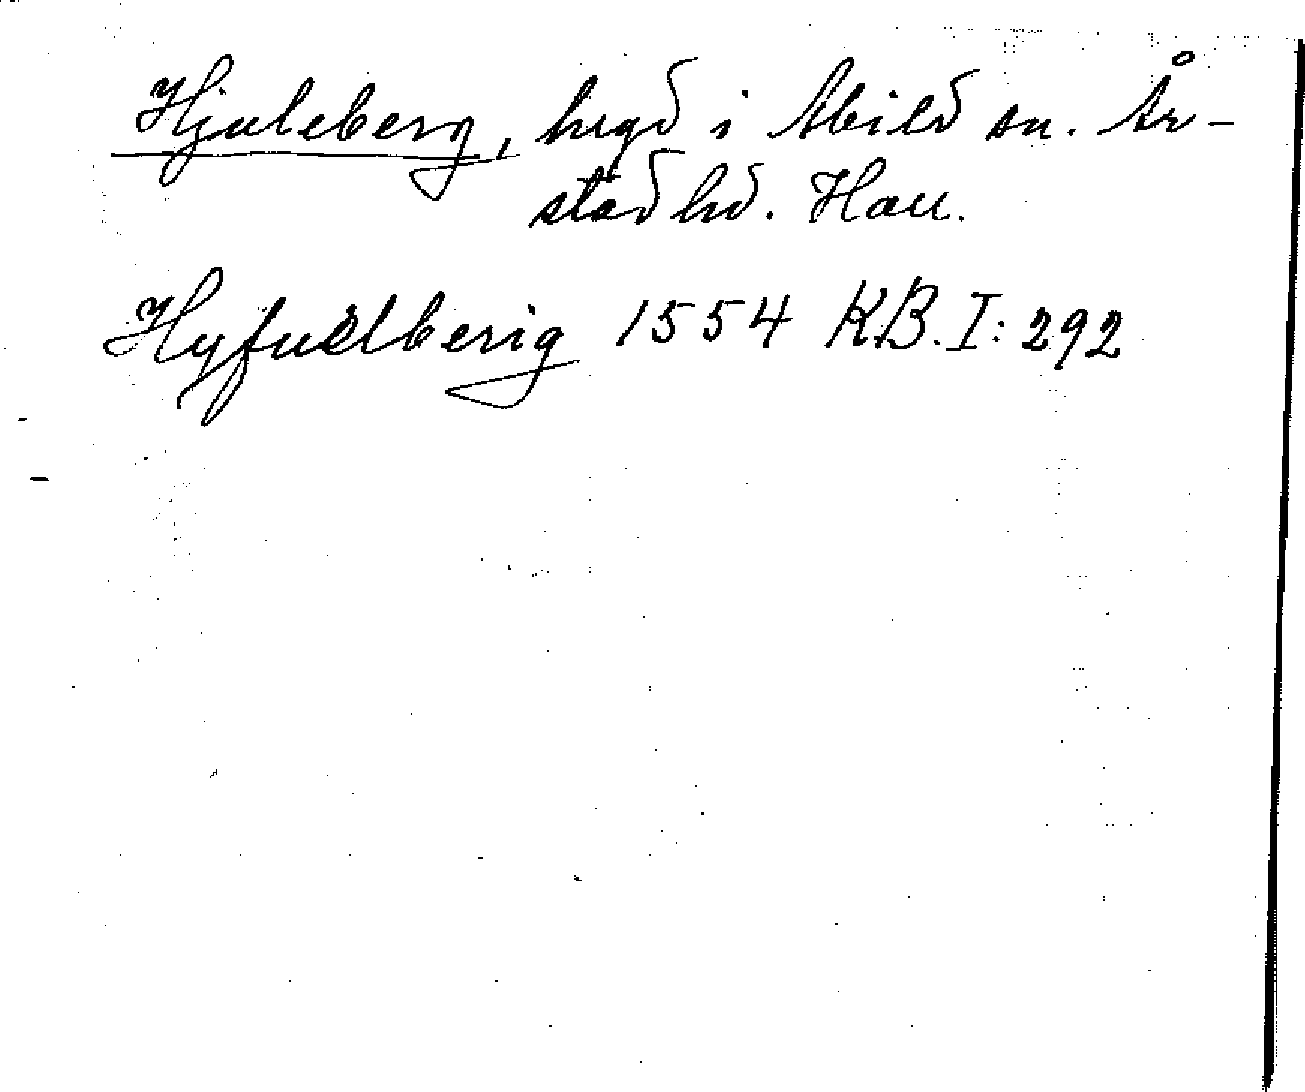 Hjuleberg, hrgd i Abild sn. År-
stad hd. Hall.
Hyfuelberig 1554 KB. I: 292